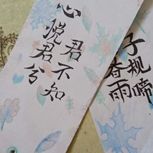 心悦君兮
君不知
子规啼
雨